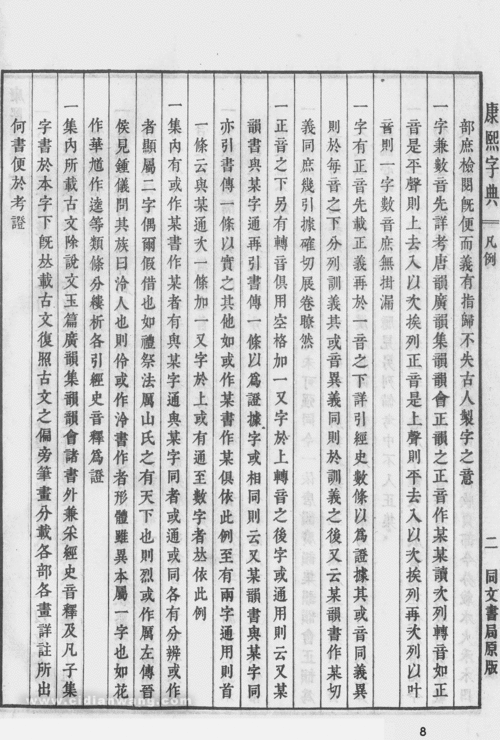 康熙字典 凡例 二 同文書局原版
部庶檢閱旣便而義有指歸不失古人製字之意
一字兼數音先詳考唐韻廣韻集韻韻會正韻之正音作某某讀次列轉音如正
音是平聲則上去入以次挨列正音是上聲則平去入以次挨列再次列以叶
音則一字數音庶無掛漏
一字有正音先載正義再於一音之下詳引經史數條以爲證據其或音異義同
則於每音之下分列訓義其或音異義同則於訓義之後又云某韻書作某切
義同庶幾引據確切展卷瞭然
一正音之下另有轉音俱用空格加一又字於上轉音之後字或通用則云又某
韻書與某字通再引書傳一條以爲證據字或相同則云又某韻書與某字同
亦引書傳一條以實之其他如或作某書作某俱依此例至有兩字通用則首
一條云與某通次一條加一又字於上或有通至數字者𠀤依此例
一集內有或作某書作某者有與某字通與某字同者或通或同各有分辨或作
者顯屬二字偶爾假借也如禮祭法厲山氏之有天下也則烈或作厲左傳晉
侯見鍾儀問其族曰泠人也則伶或作泠書作者形體雖異本屬一字也如花
作華馗作逵等類條分縷析各引經史音釋爲證
一集內所載古文除說文玉篇廣韻集韻韻會諸書外兼采經史音釋及凡子集
字書於本字下旣𠀤載古文復照古文之偏旁筆畫分載各部各畫詳註所出
何書便於考證
8